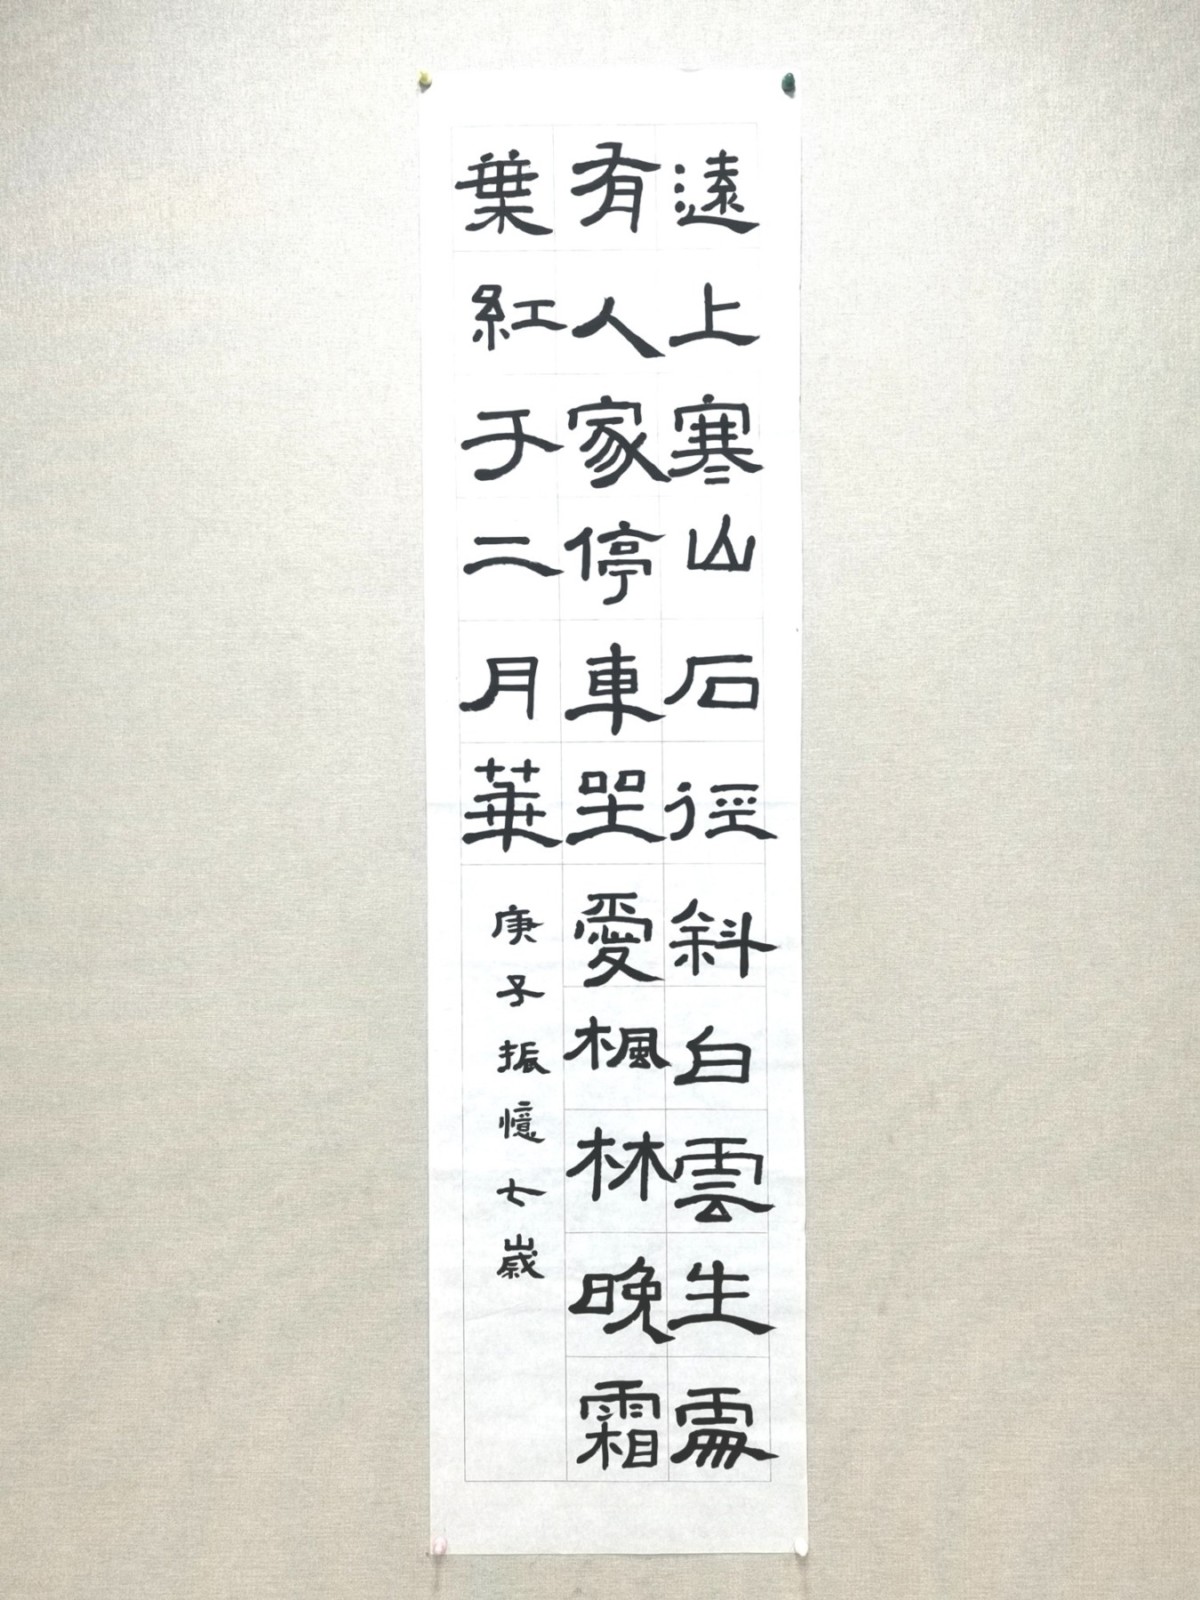 遠上寒山石徑斜白雲生處
有人家停車坐愛楓林晚霜
葉紅于二月華
庚子振憶七歲